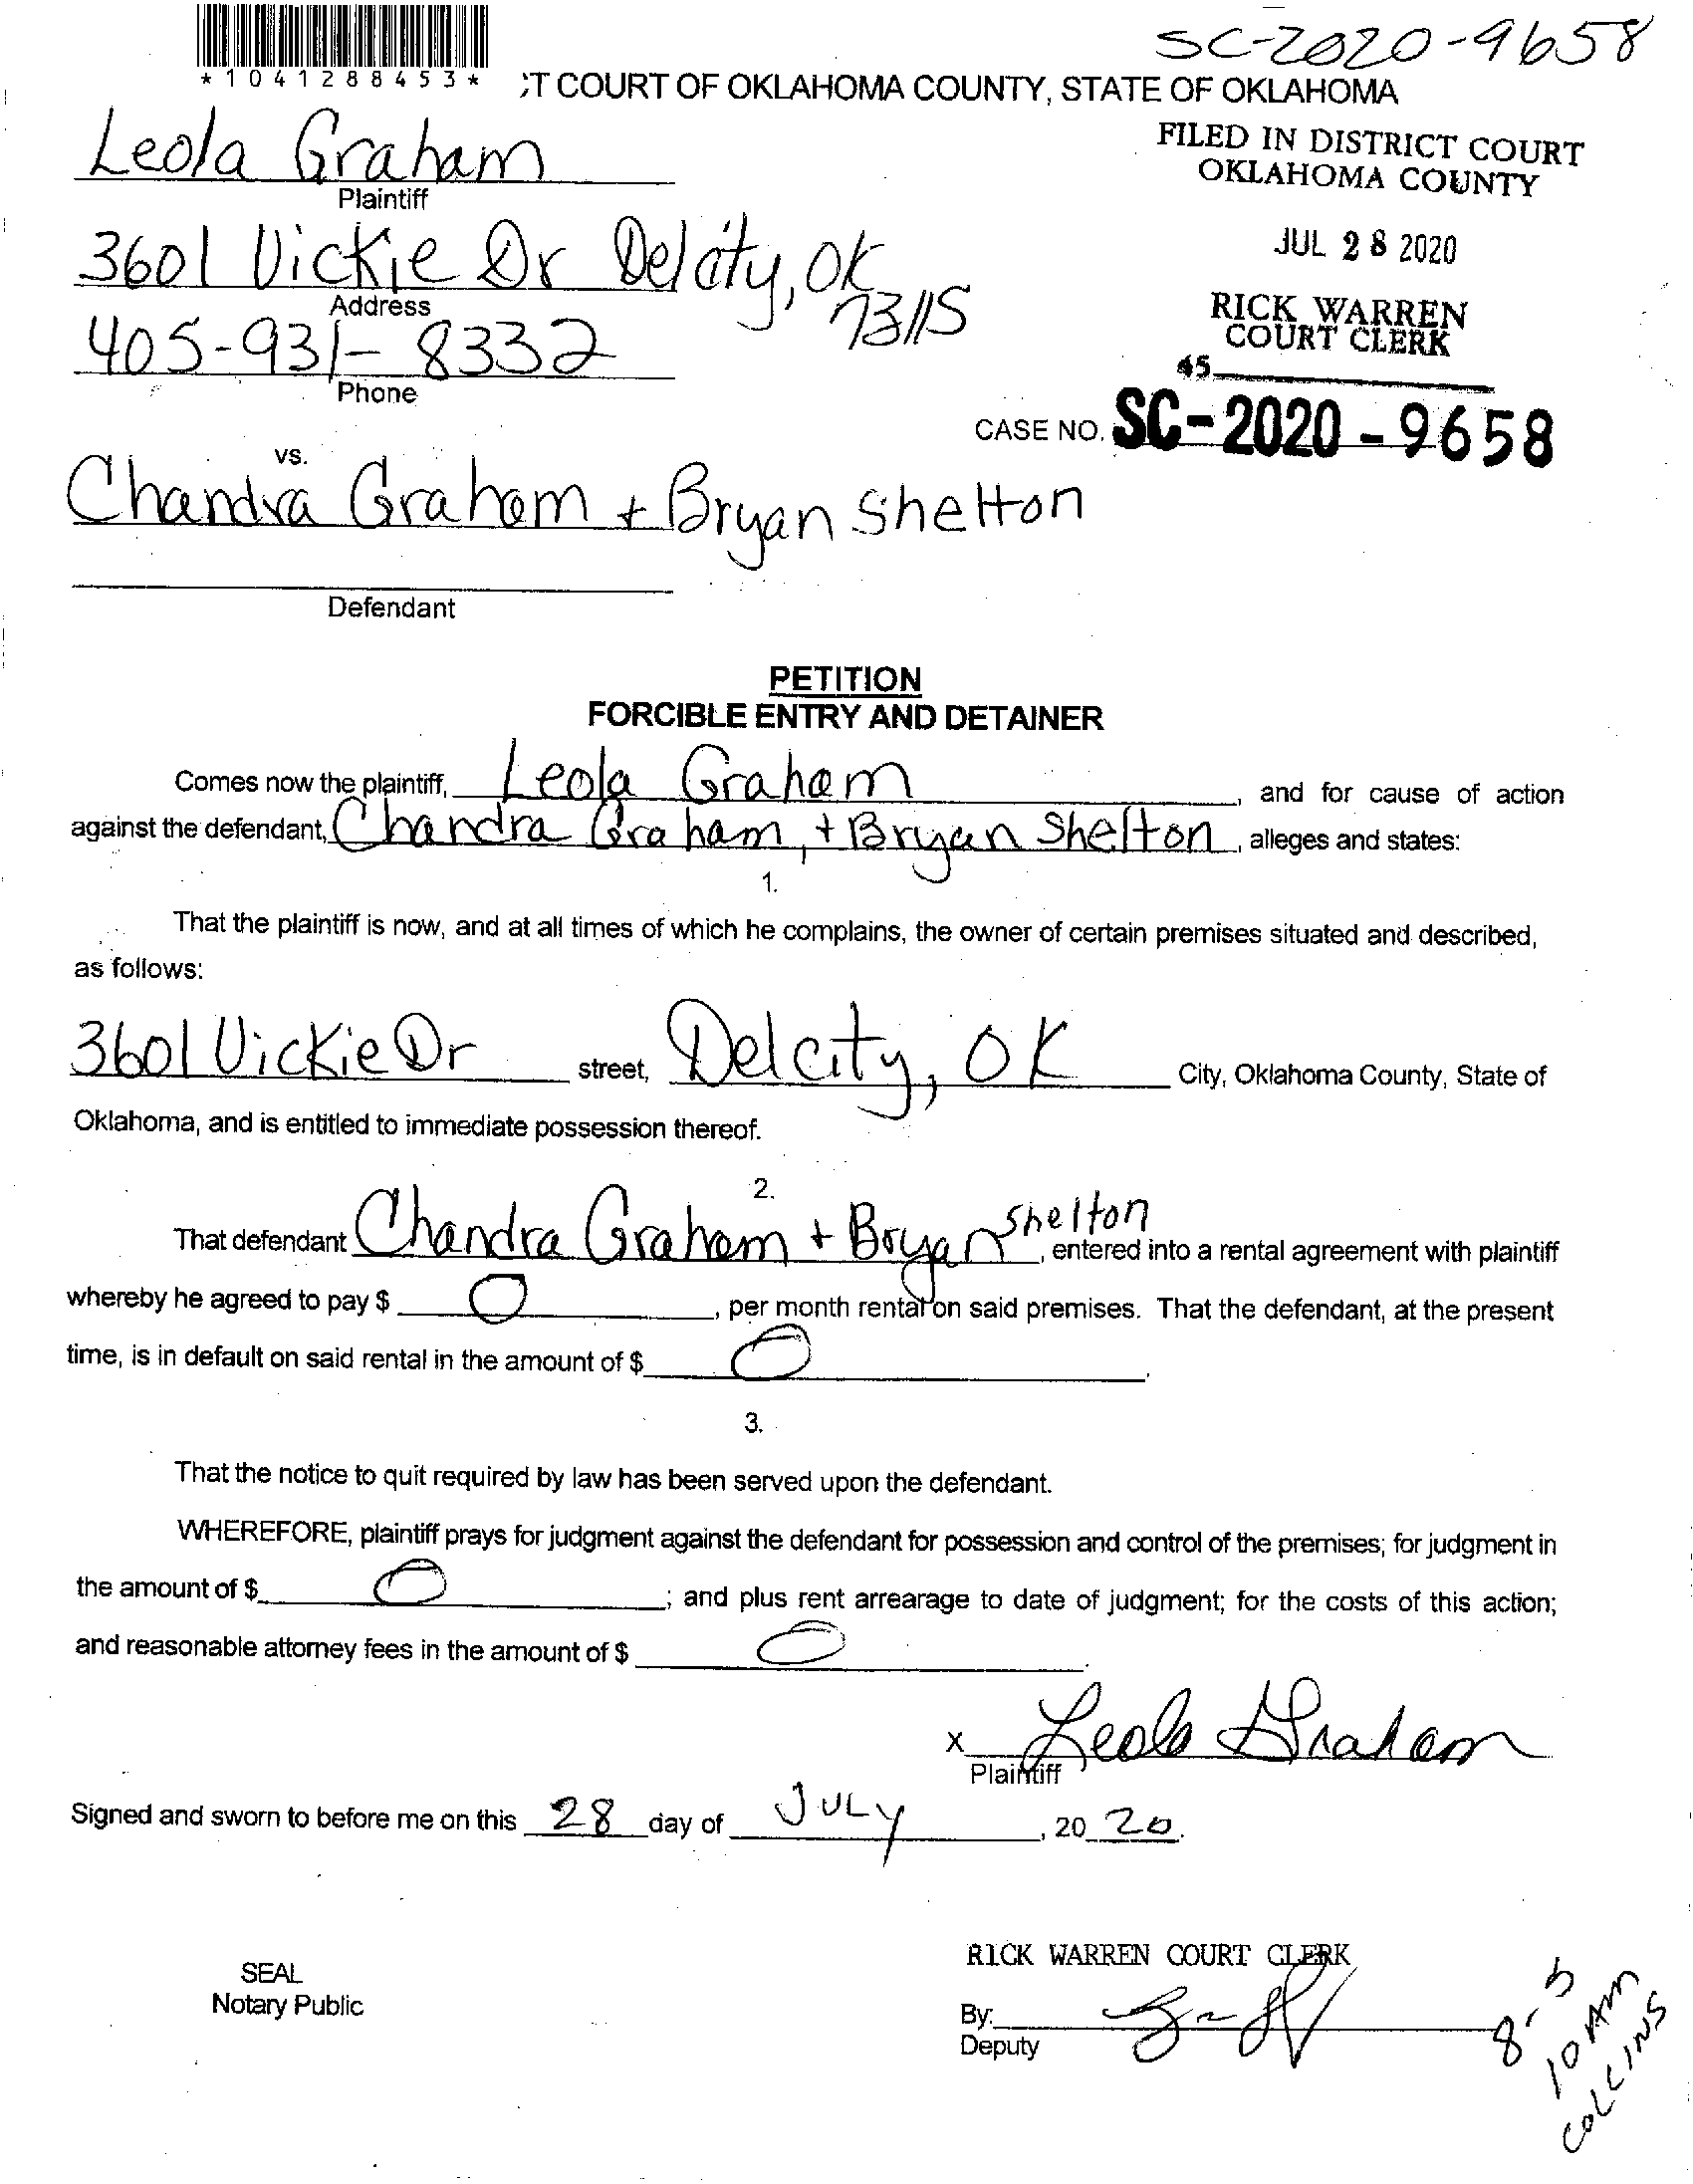 SC-2020-9658
*1041288453*
CT COURT OF OKLAHOMA COUNTY, STATE OF OKLAHOMA
Leola Graham
Plaintiff
FILED IN DISTRICT COURT
OKLAHOMA COUNTY
3601 Vickie Dr Delcity, OK
73115
Address
JUL 28 2020
405-931-8332
Phone
RICK WARREN
COURT CLERK
45
CASE NO. SC-2020-9658
vs.
Chandra Graham + Bryan Shelton
Defendant
PETITION
FORCIBLE ENTRY AND DETAINER
Comes now the plaintiff, Leola Graham, and for cause of action
against the defendant, Chandra Graham, + Bryan Shelton, alleges and states:
1.
That the plaintiff is now, and at all times of which he complains, the owner of certain premises situated and described,
as follows:
3601 Vickie Dr street, Delcity, OK City, Oklahoma County, State of
Oklahoma, and is entitled to immediate possession thereof.
2.
That defendant Chandra Graham + Bryan Shelton, entered into a rental agreement with plaintiff
whereby he agreed to pay $ 0, per month rental on said premises. That the defendant, at the present
time, is in default on said rental in the amount of $ 0.
3.
That the notice to quit required by law has been served upon the defendant.
WHEREFORE, plaintiff prays for judgment against the defendant for possession and control of the premises; for judgment in
the amount of $ 0; and plus rent arrearage to date of judgment; for the costs of this action;
and reasonable attorney fees in the amount of $ 0.
X Leola Graham
Plaintiff
Signed and sworn to before me on this 28 day of JULY, 20 20.
SEAL
Notary Public
RICK WARREN COURT CLERK
By:
Deputy
8-5
10 AM
COLLINS